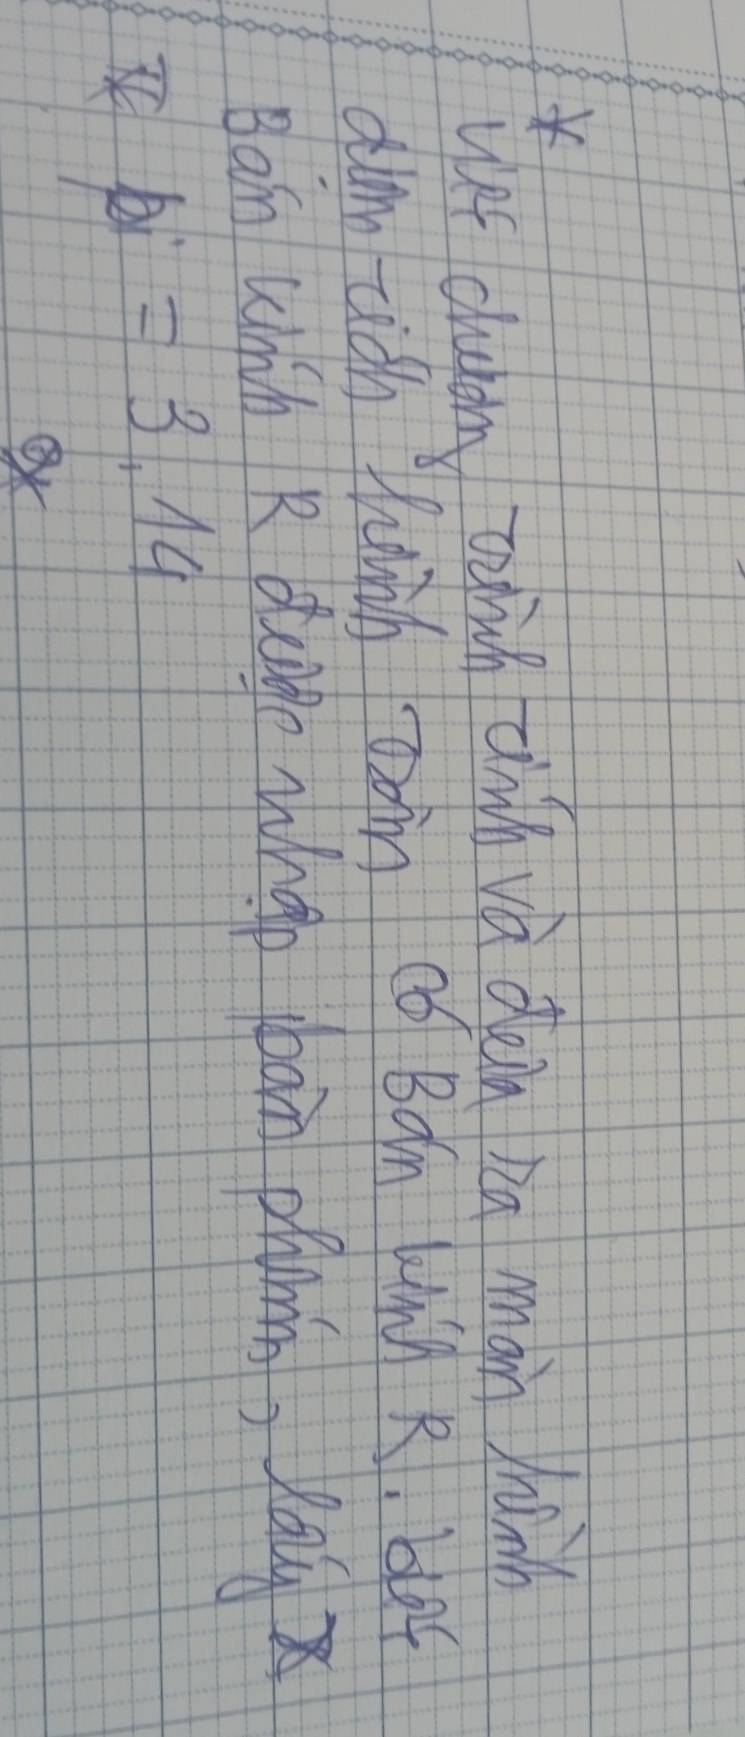 * Viết chương trình tính và đưa ra màn hình
diện tích hình tròn có Bán kính R. biết
Bán kính R được nhập bàn phím, lấy
pi = 3,14